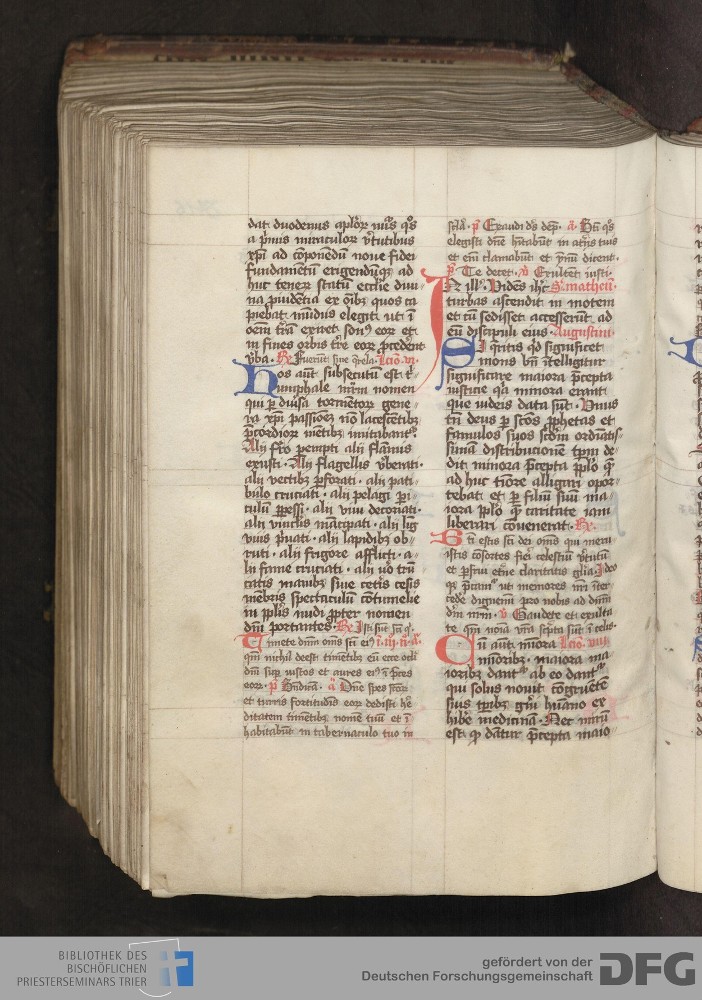 dat duodenus aplōꝝ nūs qͦs
a p̄mis miraculoꝝ v̓tutibus
xp̄i ad cōponēdū noue fidei
fundamētū erigendūqꝫ ad
huc teneꝝ statū ecclīe diui-
na ꝓuidētia ex oībꝫ quos ca
piebat mūdus elegit ut ī
oēm trā exiret sonꝰ eoꝝ et
in fines orbis tr̄e eoꝝ ꝓcedent
v̓ba. R̄ Fuerūt sine q̄rela. Lcīo. vi.
Hos aūt subsecutū est t̓-
umphale mr̄m nomen
qui ꝑ diu̓sa tormētoꝝ gene-
ra xp̄i passiōes nō lacescētibꝫ
p̄cordioꝝ mētibꝫ imitabantᷣ.
Alij fr̄o ꝑempti alij flāmis
exusti. Alij flagellis v̓berati.
alij vectibꝫ ꝑforati. alij pati-
bulo cruciati. alij pelagi ꝑi-
culū ꝑpessi. alij viui decoriati.
alij vinclis mācipati. alij lig̅
vuis p̓uati. alij lapidibꝫ ob-
ruti. alij frigore afflicti. a-
lij fame cruciati. alij u̓o trū
catis manibꝫ siue cetis cesis
mēbris spectaculū cōtumelie
in pp̄lis nudi ꝓpter nomen
dn̄i portantes. R̄ Isti sūt scī q̓.
Timete dn̄m om̄s scī eiꝰ
qm̄ nichil deest timētibꝫ eū ecce oc̄li
dn̄i suꝑ iustos et aures eiꝰ ī p̄ces
eoꝝ. p̄ Bn̄dicā. a Dn̄e spes scōꝝ
et turris fortitudīs eoꝝ dedisti he̅
ditatem timētibꝫ nomē tuū et ī
habitabūt in tabernaculo tuo in
sc̄la. p̄ Exaudi ds̄ dep̄. a. Bti qͦs
elegisti dn̄e hītabūt in atrijs tuis
et em̄ clamabūt et ymū dicent.
p̄ Te decet. v̓ Exultēt iusti.
In ill̓. Vidēs ihc̄ S. matheū.
turbas ascendit in motem
et cū sedisset accesserūt ad
eū discipuli eius. Augustini
Si q̄ritis qd̓ significet
mons bn̄ ītelligitur
significare maiora p̄cepta
iusticie qa̓ minora erant
que iudeis data sūt. Vnus
tn̄ deus ꝑ sc̄os ꝓphetas et
famulos suos scd̄m ordiatis-
simā distribucionē tpm̄ de-
dit minora p̄cepta pp̄lo qͥ
ad huc tiōre alligari opor-
tebat et ꝑ filiū suū ma-
iora pp̄lo qͦ caritate iam
liberari cōuenerat. R̄.
Bti estis scī dei om̄s qui meru
istis cōsortes fieri celestiū v̓tutū
et ꝑfrui et̄ne claritatis gl̄ia. Ideo
qs̄ p̄camᷣ ut memores nr̄i īter
cede̅ dignemī pro nobis ad dn̄m
dm̄ nr̄m. v̓ Gaudete et exulta
te qm̄ noīa vr̄a sc̄pta sūt ī celis.
Cū autē miora Lcīo. viij.
mioribꝫ. maiora ma
ioribꝫ dantᷣ ab eo dantᷣ
qui solus nouit cōgruētē
suis tp̄ibꝫ gn̄i hūano ex
hibe̅ medicinā. Nec mirū
est qꝫ dātur p̄cepta maio-
BIBLIOTHEK DES
BISCHÖFLICHEN
PRIESTERSEMINARS TRIER
gefördert von der
Deutschen Forschungsgemeinschaft
DFG